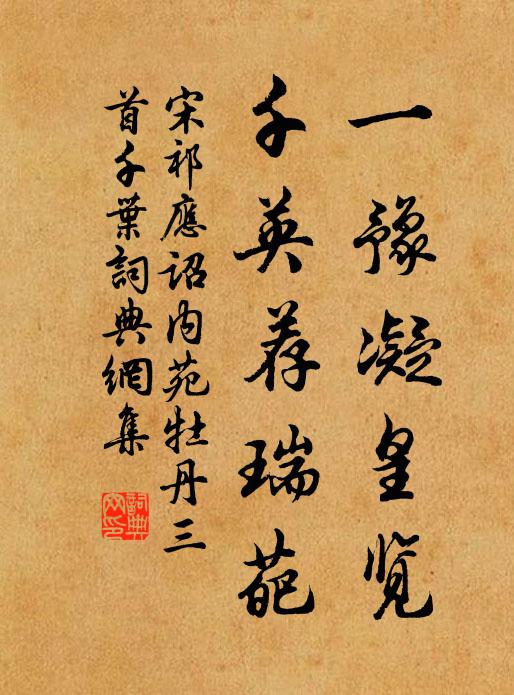 一豫凝皇览
千英荐瑞葩
宋祁應詔内苑牡丹三
首千葉詞典網集
詞典